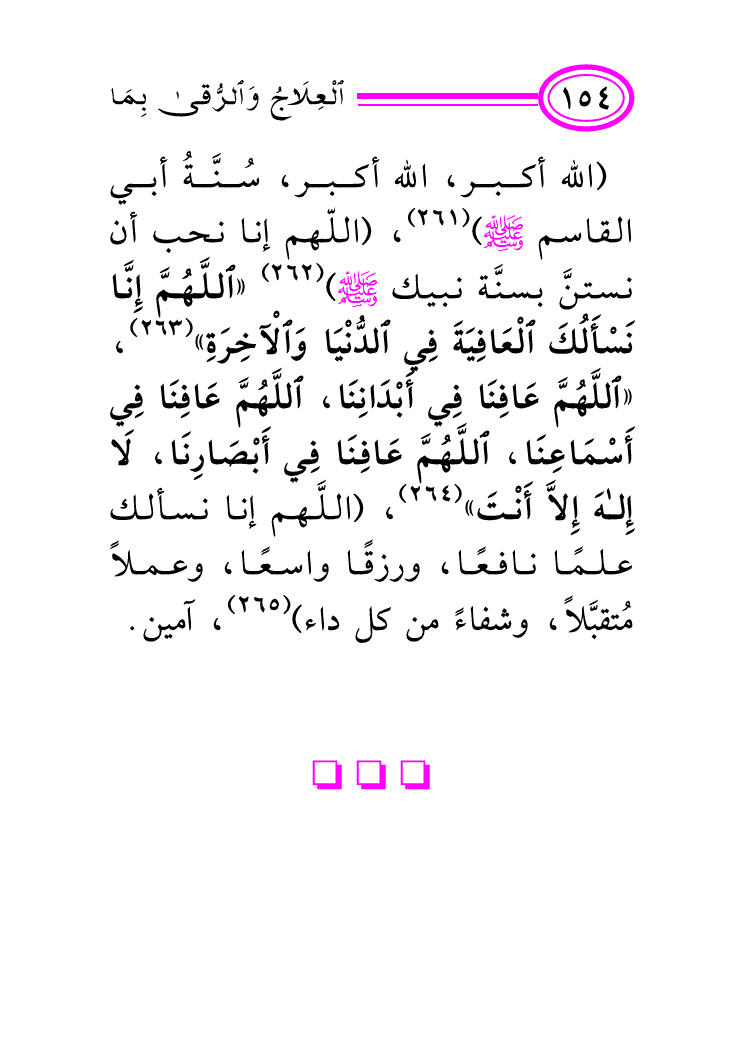 ١٥٤ ٱلْعِلَاجُ وَٱلرُّقىٰ بِمَا
(الله أكبر، الله أكبر، سُنَّةُ أبي
القاسم ﷺ)(٢٦١)، (اللّهم إنا نحب أن
نستنَّ بسنَّة نبيك ﷺ)(٢٦٢) «ٱللَّهُمَّ إِنَّا
نَسْأَلُكَ ٱلْعَافِيَةَ فِي ٱلدُّنْيَا وَٱلْآخِرَةِ»(٢٦٣)،
«ٱللَّهُمَّ عَافِنَا فِي أَبْدَانِنَا، ٱللَّهُمَّ عَافِنَا فِي
أَسْمَاعِنَا، ٱللَّهُمَّ عَافِنَا فِي أَبْصَارِنَا، لَا
إِلـٰهَ إِلاَّ أَنْتَ»(٢٦٤)، (اللَّهم إنا نسألك
علمًا نافعًا، ورزقًا واسعًا، وعملاً
مُتقبَّلاً، وشفاءً من كل داء)(٢٦٥)، آمين.